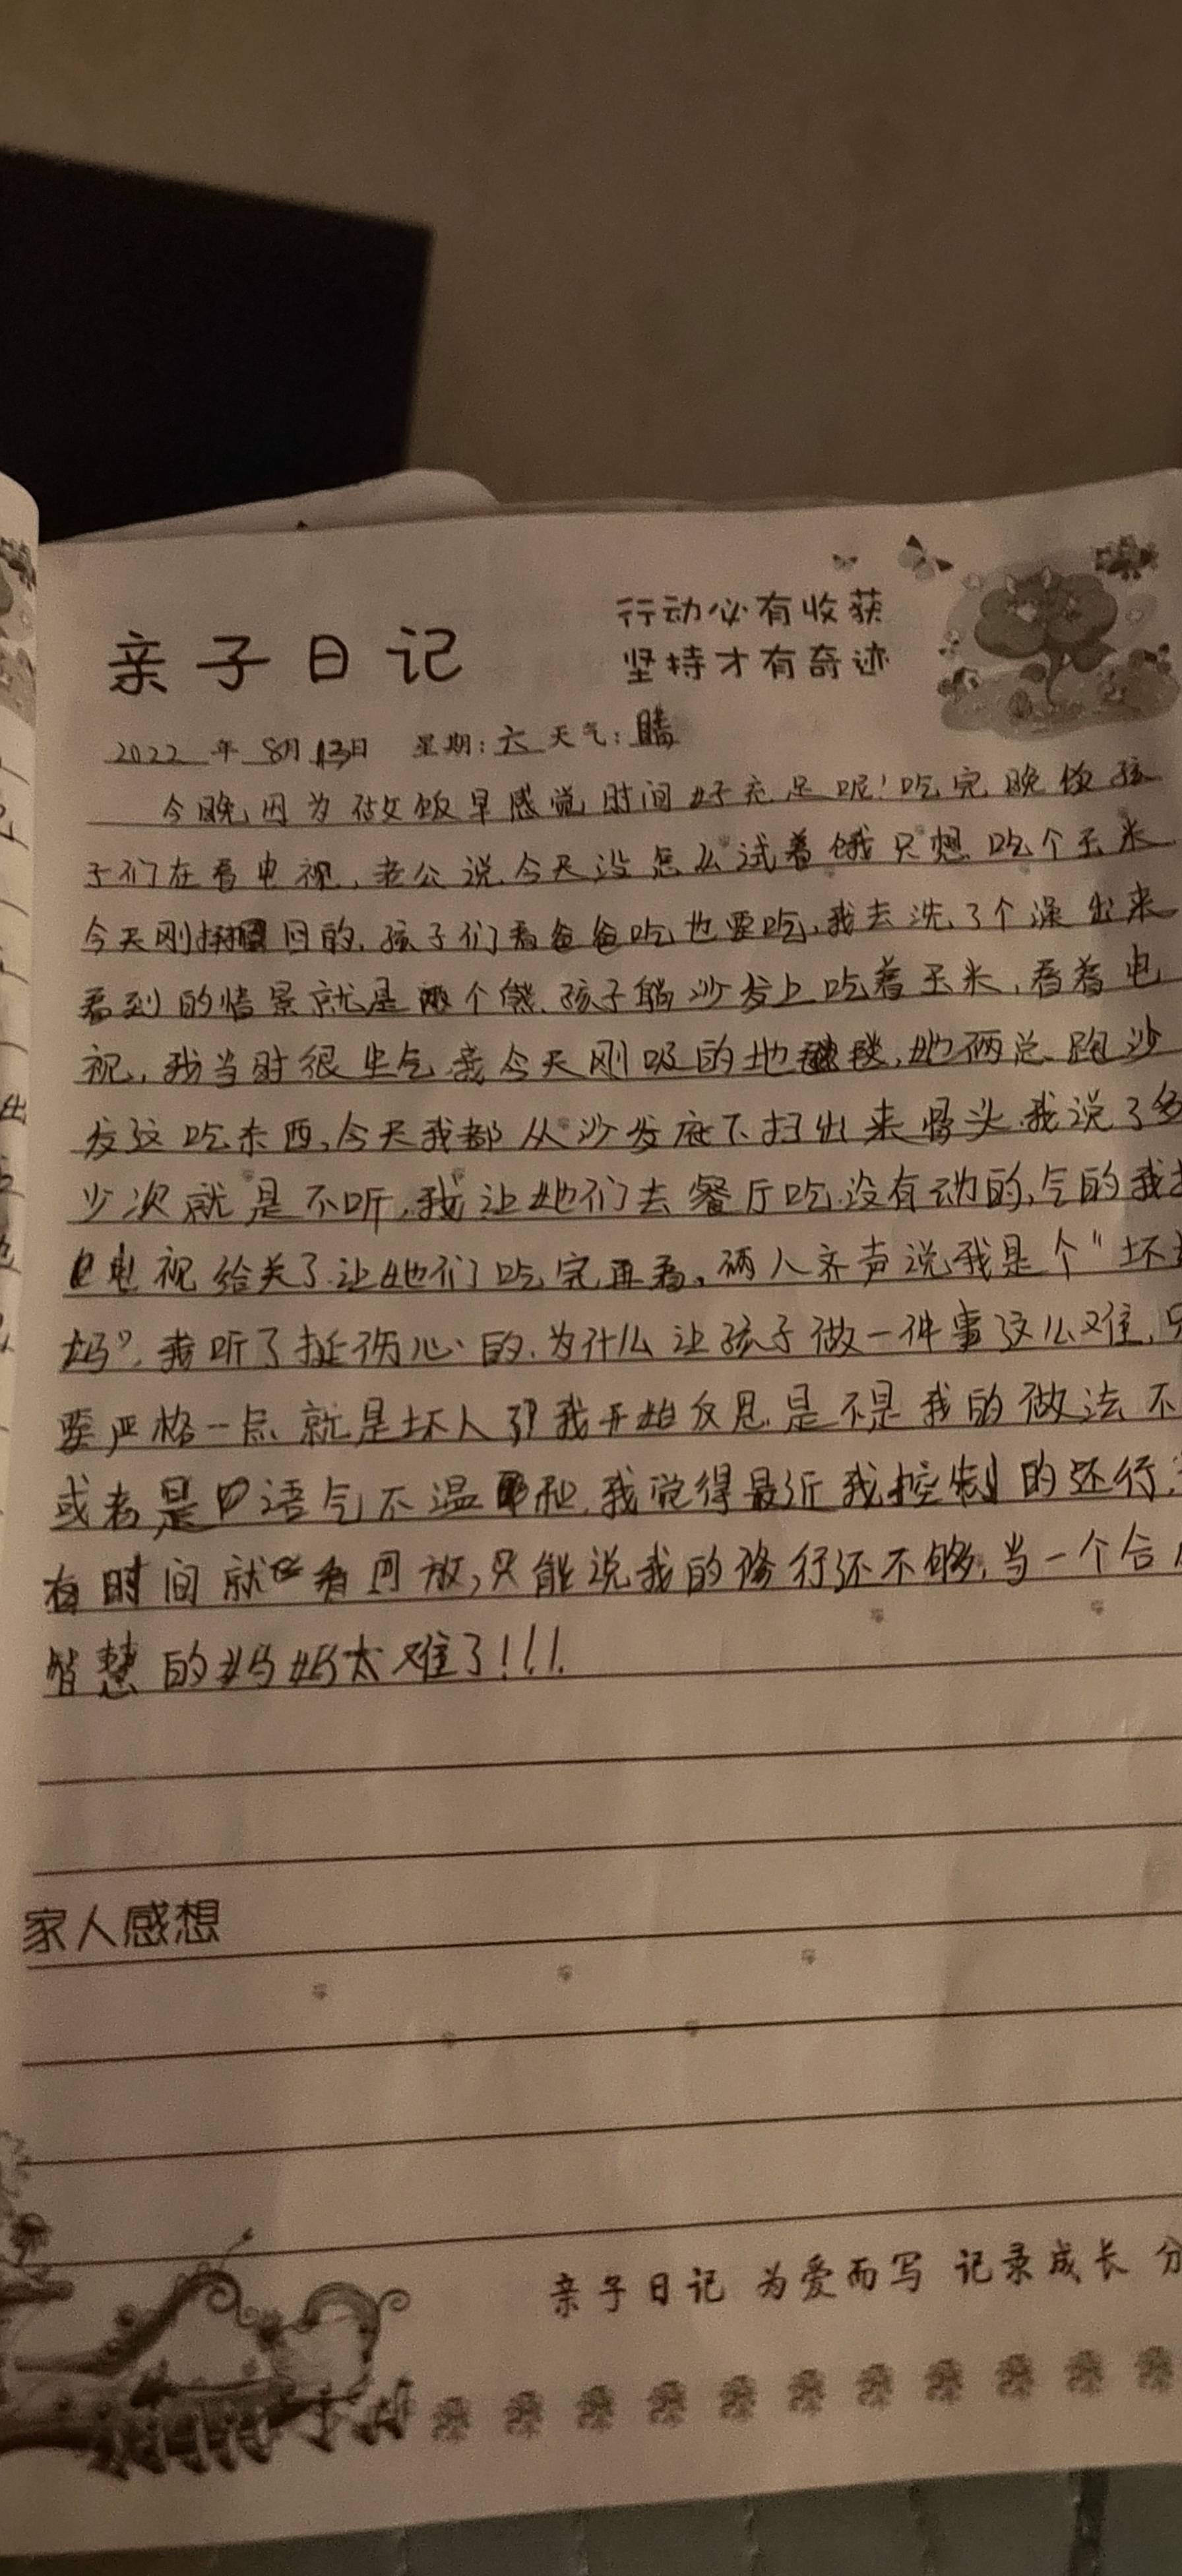 亲子日记
行动必有收获
坚持才有奇迹
2022年8月13日 星期:六 天气:晴
今晚因为做饭早感觉时间好充足呢!吃完晚饭孩
子们在看电视,老公说今天没怎么试着饿只想吃个玉米
今天刚掰回的,孩子们看爸爸吃也要吃,我去洗了个澡出来
看到的情景就是两个熊孩子躺沙发上吃着玉米,看着电
视,我当时很生气,我今天刚吸的地毯,她俩总跑沙
发这吃东西,今天我都从沙发底下扫出来骨头,我说了多
少次就是不听,我让她们去餐厅吃没有动的,气的我
电视给关了让她们吃完再看。俩人齐声说我是个"坏
妈",我听了挺伤心的,为什么让孩子做一件事这么难,只
要严格一点就是坏人了?我开始反思是不是我的做法不
或者是语气不温和,我觉得最近我控制的还行,
有时间就看回放,只能说我的修行还不够,当一个合
智慧的妈妈太难了!!!
家人感想
亲子日记 为爱而写 记录成长 分